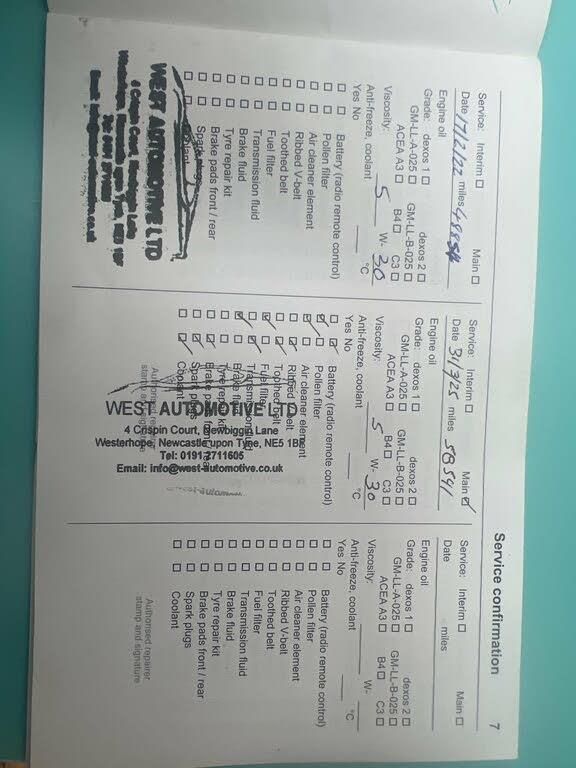 Service confirmation
7
Service: Interim ☐ Main ☐
Date 17/2/22 miles 48854
Engine oil
Grade: dexos 1 ☐ dexos 2 ☐
GM-LL-A-025 ☐ GM-LL-B-025 ☐
ACEA A3 ☐ B4 ☐ C3 ☐
Viscosity: 5 W- 30
Anti-freeze, coolant °C
Yes No
☐ ☐ Battery (radio remote control)
☐ ☐ Pollen filter
☐ ☐ Air cleaner element
☐ ☐ Ribbed V-belt
☐ ☐ Toothed belt
☐ ☐ Fuel filter
☐ ☐ Transmission fluid
☐ ☐ Brake fluid
☐ ☐ Tyre repair kit
☐ ☐ Brake pads front / rear
☐ ☐ Spark plugs
☐ ☐ Coolant
WEST AUTOMOTIVE LTD
4 Crispin Court, Newbiggin Lane
Westerhope, Newcastle upon Tyne, NE5 1BF
Service: Interim ☐ Main ☑
Date 31/3/25 miles 58541
Engine oil
Grade: dexos 1 ☐ dexos 2 ☐
GM-LL-A-025 ☐ GM-LL-B-025 ☐
ACEA A3 ☐ B4 ☐ C3 ☐
Viscosity: 5 W- 30
Anti-freeze, coolant °C
Yes No
Battery (radio remote control)
Pollen filter
Air cleaner element
Ribbed V-belt
Toothed belt
Fuel filter
Transmission fluid
Brake fluid
Tyre repair kit
Brake pads front / rear
Spark plugs
Coolant
WEST AUTOMOTIVE LTD
4 Crispin Court, Newbiggin Lane
Westerhope, Newcastle upon Tyne, NE5 1BF
Tel: 0191 2711605
Email: info@west-automotive.co.uk
Service: Interim ☐ Main ☐
Date miles
Engine oil
Grade: dexos 1 ☐ dexos 2 ☐
GM-LL-A-025 ☐ GM-LL-B-025 ☐
ACEA A3 ☐ B4 ☐ C3 ☐
Viscosity: W-
Anti-freeze, coolant °C
Yes No
☐ ☐ Battery (radio remote control)
☐ ☐ Pollen filter
☐ ☐ Air cleaner element
☐ ☐ Ribbed V-belt
☐ ☐ Toothed belt
☐ ☐ Fuel filter
☐ ☐ Transmission fluid
☐ ☐ Brake fluid
☐ ☐ Tyre repair kit
☐ ☐ Brake pads front / rear
☐ ☐ Spark plugs
☐ ☐ Coolant
Authorised repairer
stamp and signature